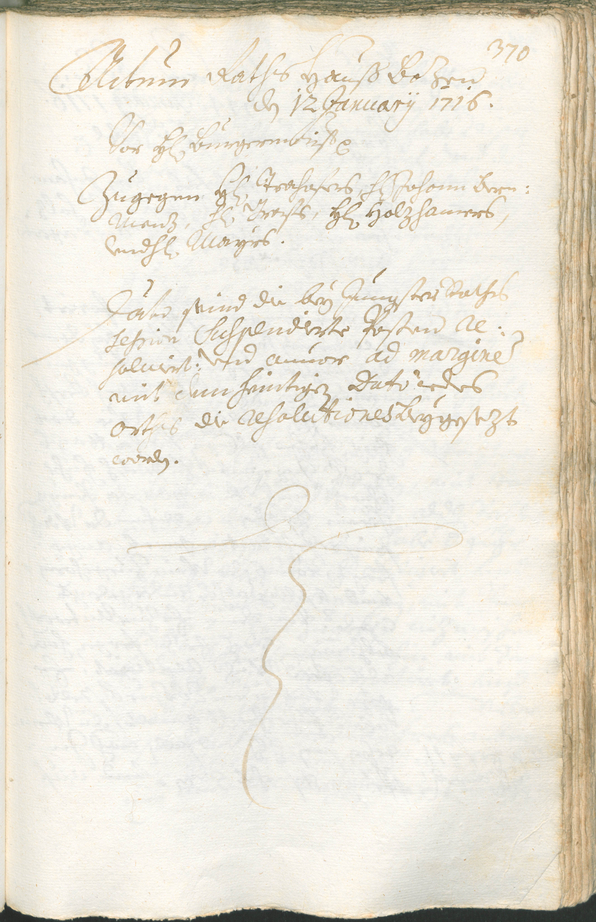 370
Actum Raths Hauß Bozen
den 12 January 1716.
Vor H: Burgermaister
Zugegen H: Trohofers, H: Johann Bern-
H: Holzhamers,
und H: Mayrs.
Dato seind die bey Jüngster Raths
Session Suspendierte Posten re-
solviert: und anvor ad margine
mit dem heintigen Dato iedes
orths die resolutiones beygesezt
worden.